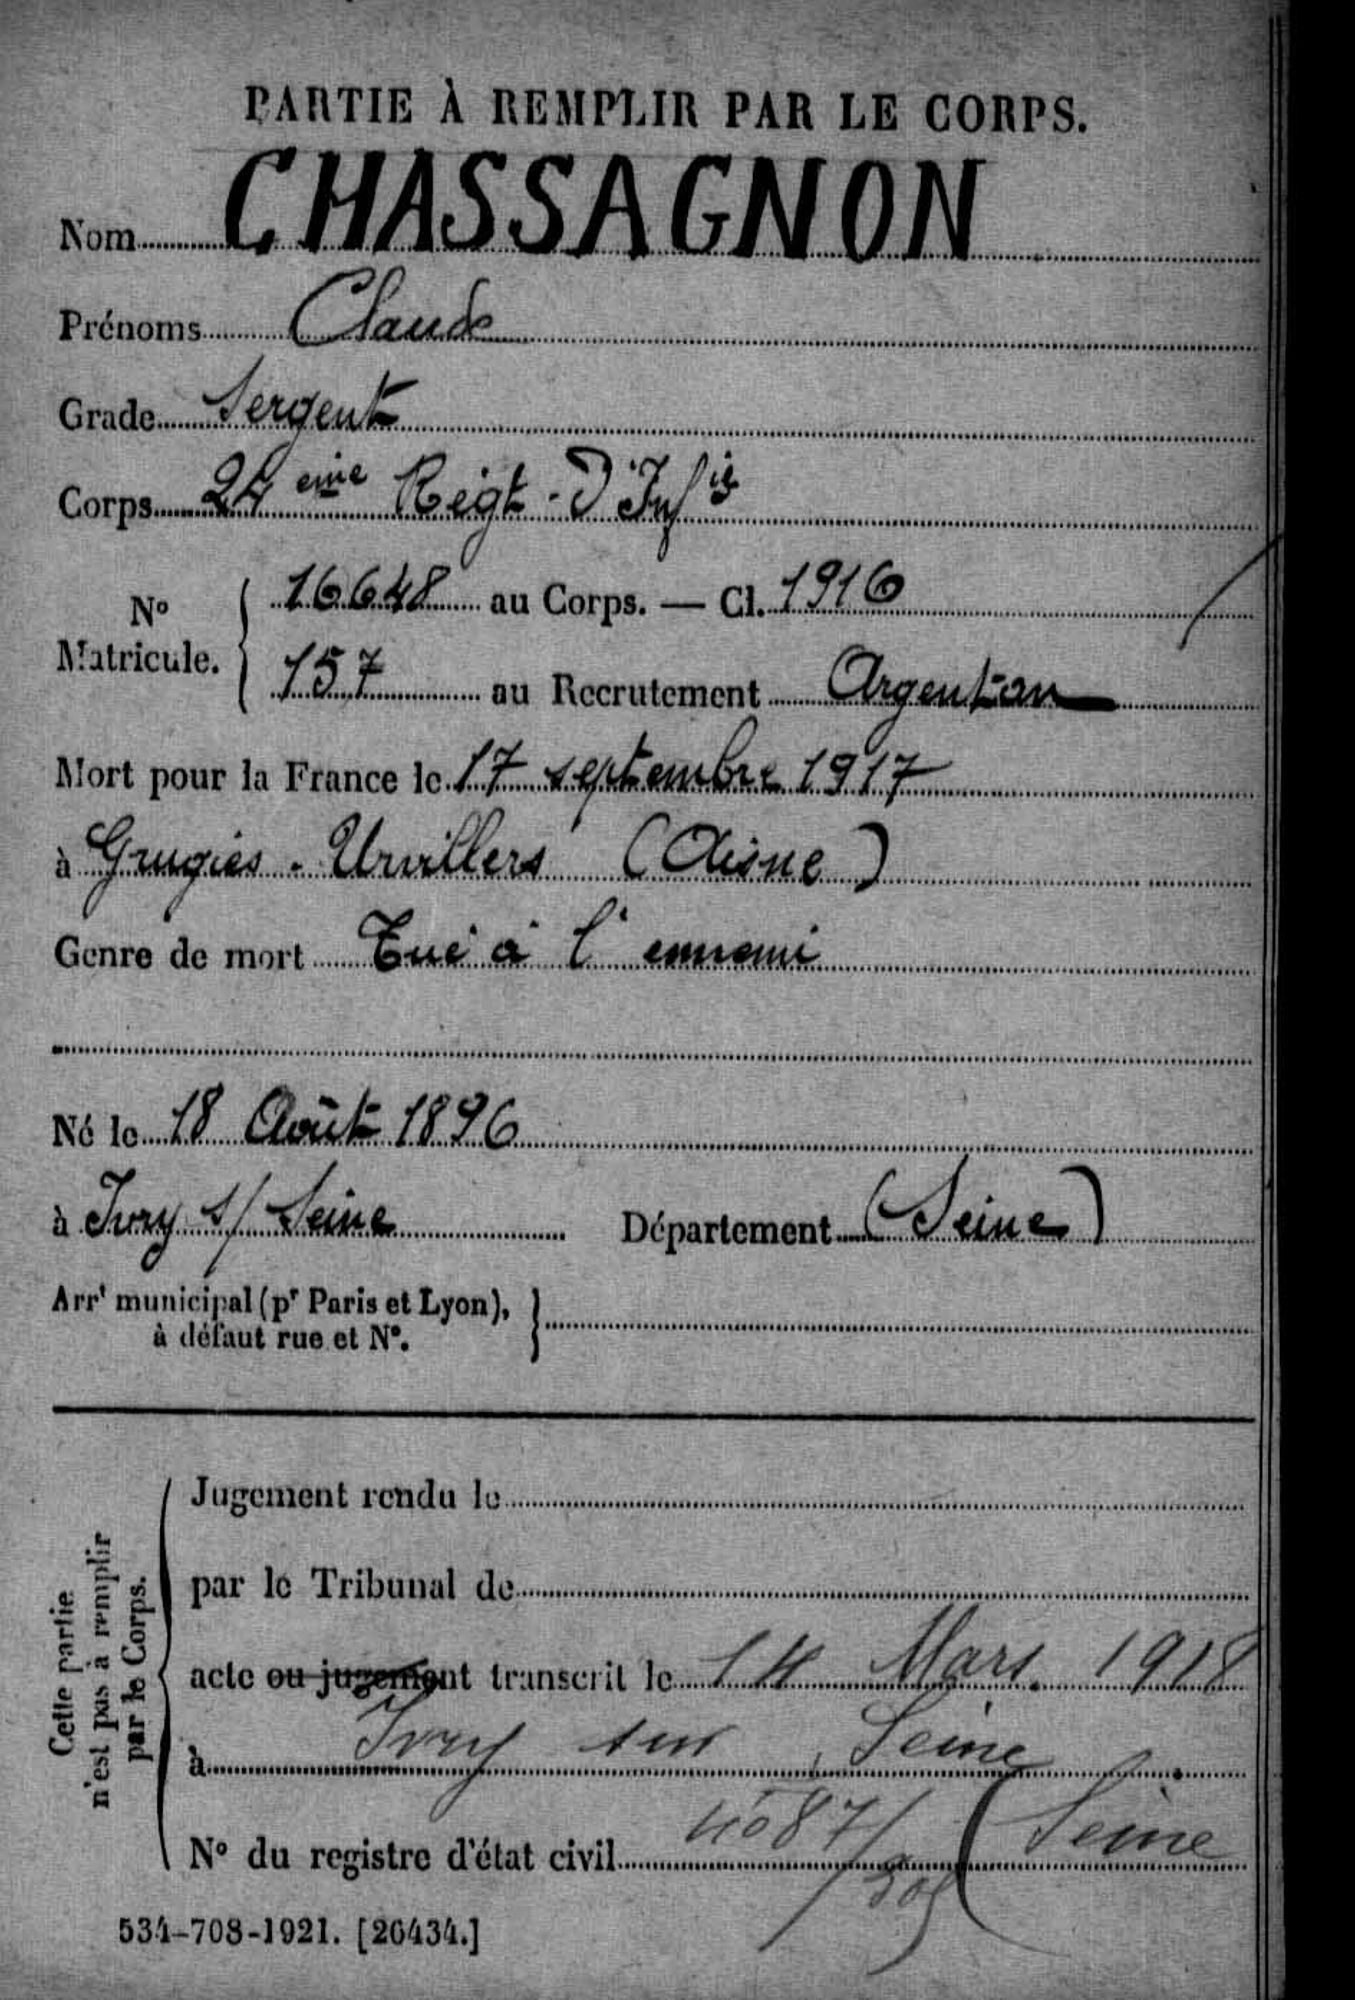 PARTIE À REMPLIR PAR LE CORPS.
Nom CHASSAGNON
Prénoms Claude
Grade Sergent
Corps 24 eme Régt. D'Infie
No Matricule. { 16648 au Corps. — Cl. 1916
157 au Recrutement Argentan
Mort pour la France le 17 septembre 1917
à Grugies - Urvillers (Aisne)
Genre de mort Tué à l'ennemi
Né le 18 Août 1896
à Ivry s/ Seine Département (Seine)
Arrt municipal (pr Paris et Lyon), à défaut rue et No. }
Cette partie n'est pas à remplir par le Corps.
Jugement rendu le
par le Tribunal de
acte ou jugement transcrit le 14 Mars 1918
à Ivry sur Seine
(Seine
No du registre d'état civil
534-708-1921. [26434.]